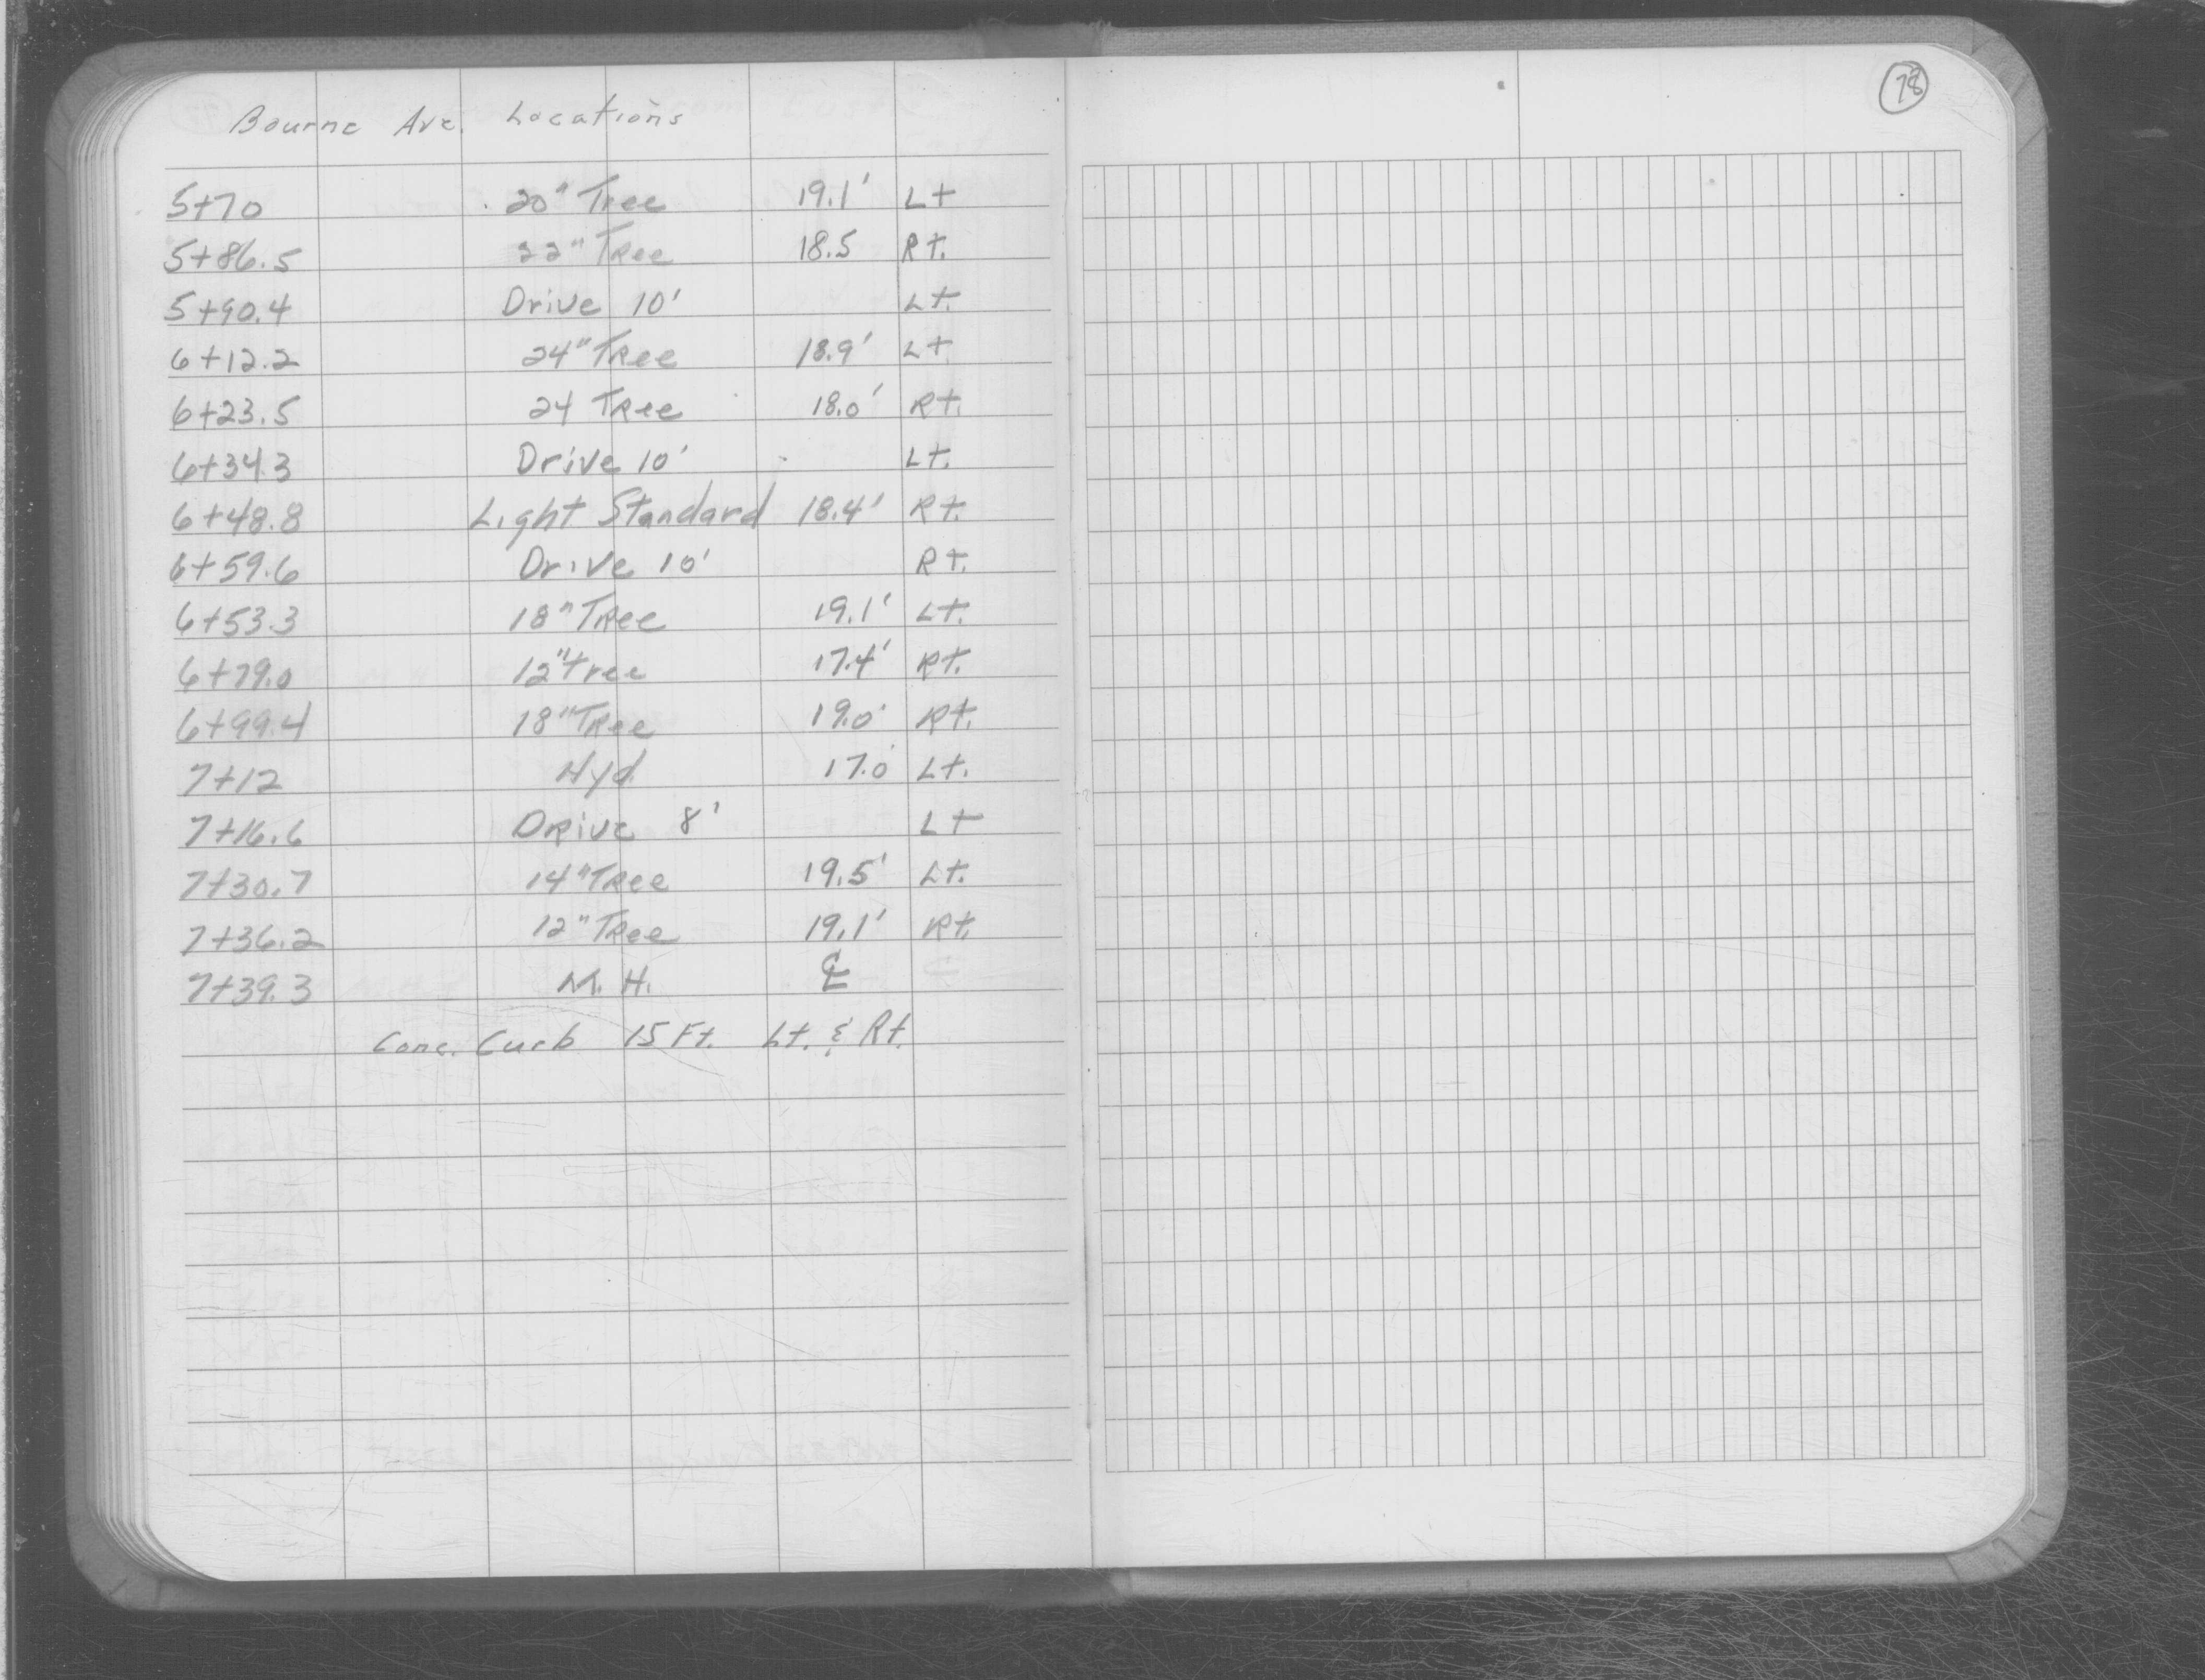 Bourne Ave. Locations
78
5+70 20" Tree 19.1' Lt
5+86.5 22" Tree 18.5 Rt.
5+90.4 Drive 10' Lt.
6+12.2 24" Tree 18.9' Lt
6+23.5 24 Tree 18.0' Rt.
6+34.3 Drive 10' Lt.
6+48.8 Light Standard 18.4' Rt.
6+59.6 Drive 10' Rt.
6+53.3 18" Tree 19.1' Lt.
6+79.0 12" tree 17.4' Rt.
6+99.4 18" Tree 19.0' Rt.
7+12 Hyd. 17.0' Lt.
7+16.6 Drive 8' Lt
7+30.7 14" Tree 19.5' Lt.
7+36.2 12" Tree 19.1' Rt.
7+39.3 M.H. ℄
Conc. Curb 15 Ft. Lt. & Rt.